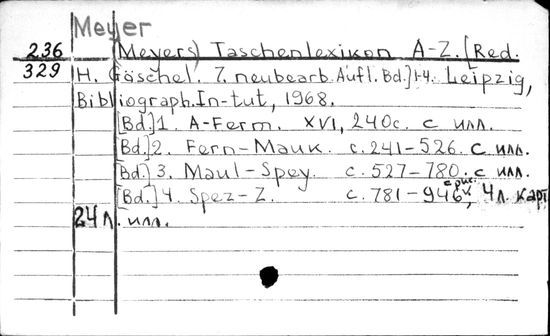 Meyer
236 (Meyers) Taschenlexikon A-Z. [Red.
329 H. Göschel. 7. neubearb. Aufl. Bd.] 1-4. Leipzig,
Bibliograph. In-tut, 1968.
[Bd.] 1. A-Ferm. XVI, 240с. с илл.
[Bd.] 2. Fern-Mauk. с. 241-526. с илл.
[Bd.] 3. Maul-Spey. с. 527-780. с илл.
[Bd.] 4. Spez-Z. с. 781-946, с рис. 4 л. карт
24 л. илл.